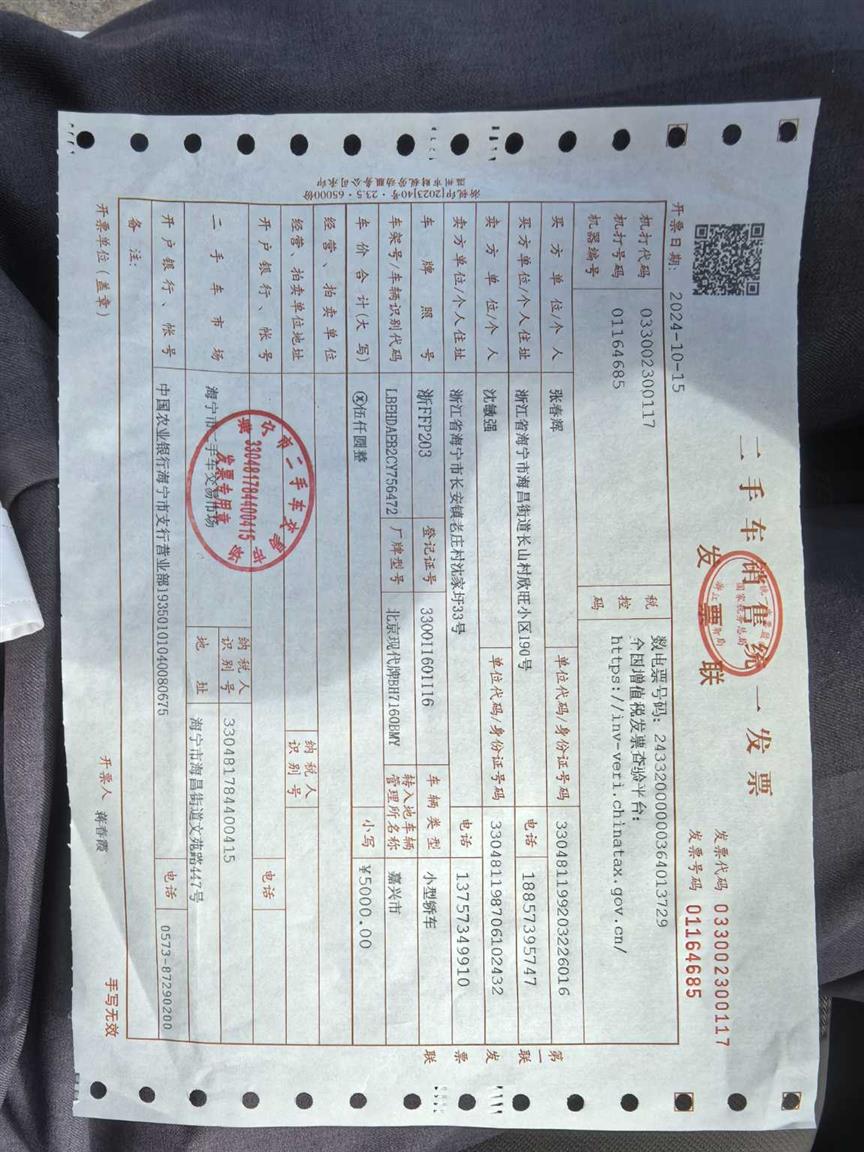 二手车销售统一发票
发票联
发票代码 033002300117
发票号码 01164685
开票日期: 2024-10-15
机打代码 033002300117
机打号码 01164685
机器编号
税控码
数电票号码: 24332000000364013729
全国增值税发票查验平台:
https://inv-veri.chinatax.gov.cn/
买方单位/个人 张春辉 单位代码/身份证号码 330481199203226016
买方单位/个人住址 浙江省海宁市海昌街道长山村欣旺小区190号 电话 18857395747
卖方单位/个人 沈敏强 单位代码/身份证号码 330481198706102432
卖方单位/个人住址 浙江省海宁市长安镇老庄村沈家圩33号 电话 13757349910
车牌照号 浙FFP203 登记证号 330011601116 车辆类型 小型轿车
车架号/车辆识别代码 LBEHDAEB2CY756472 厂牌型号 北京现代牌BH7160BMY 转入地车辆管理所名称 嘉兴市
车价合计(大写) ⓧ伍仟圆整 小写 ¥5000.00
经营、拍卖单位
经营、拍卖单位地址 纳税人识别号
开户银行、帐号 电话
二手车市场 海宁市二手车交易市场 纳税人识别号 330481784400415
地址 海宁市海昌街道文苑路447号
开户银行、帐号 中国农业银行海宁市支行营业部19350101040080675 电话 0573-87290200
备注:
开票单位(盖章) 开票人 蒋春霞 手写无效
第一联 发票联
浙税印[2023]40号·23.5·65000份
温州市财税劳动服务公司承印
330481784400415
发票专用章
国家税务总局